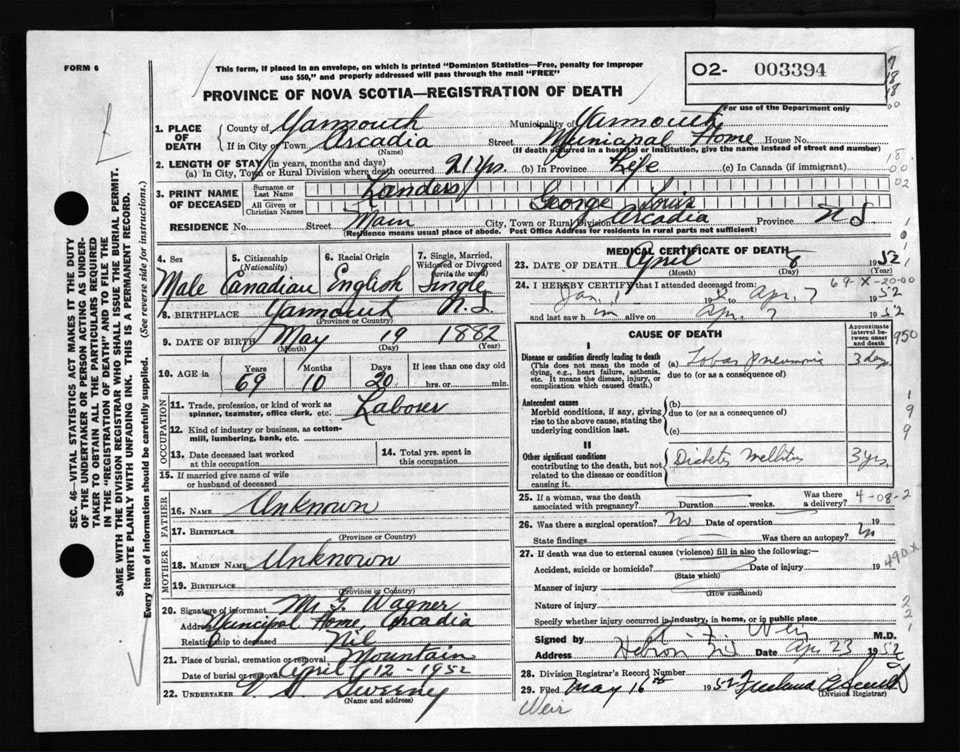 FORM 6
This form, if placed in an envelope, on which is printed "Dominion Statistics—Free, penalty for improper
use $50," and properly addressed will pass through the mail "FREE"
PROVINCE OF NOVA SCOTIA—REGISTRATION OF DEATH
02- 003394
For use of the Department only
SEC. 46—VITAL STATISTICS ACT MAKES IT THE DUTY
OF THE UNDERTAKER OR PERSON ACTING AS UNDER-
TAKER TO OBTAIN ALL THE PARTICULARS REQUIRED
IN THE "REGISTRATION OF DEATH" AND TO FILE THE
SAME WITH THE DIVISION REGISTRAR WHO SHALL ISSUE THE BURIAL PERMIT.
WRITE PLAINLY WITH UNFADING INK. THIS IS A PERMANENT RECORD.
Every item of information should be carefully supplied. (See reverse side for instructions.)
1. PLACE OF DEATH
County of Yarmouth Municipality of Yarmouth
If in City or Town Arcadia Street Municipal Home House No.
(Name) (If death occurred in a hospital or institution, give the name instead of street and number)
2. LENGTH OF STAY (in years, months and days)
(a) In City, Town or Rural Division where death occurred 21 yrs. (b) In Province Life (c) In Canada (if immigrant)
3. PRINT NAME OF DECEASED
Surname or Last Name Landers
All Given or Christian Names George Louis
RESIDENCE No. Street Main City, Town or Rural Division Arcadia Province N S
(Residence means usual place of abode. Post Office Address for residents in rural parts not sufficient)
4. Sex Male
5. Citizenship (Nationality) Canadian
6. Racial Origin English
7. Single, Married, Widowed or Divorced (write the word) Single
8. BIRTHPLACE Yarmouth N.S.
(Province or Country)
9. DATE OF BIRTH May 19 1882
(Month) (Day) (Year)
10. AGE in Years 69 Months 10 Days 20 If less than one day old
hrs. or min.
OCCUPATION
11. Trade, profession, or kind of work as spinner, teamster, office clerk, etc. Laborer
12. Kind of industry or business, as cotton-mill, lumbering, bank, etc.
13. Date deceased last worked at this occupation
14. Total yrs. spent in this occupation
15. If married give name of wife or husband of deceased
FATHER
16. NAME Unknown
17. BIRTHPLACE
(Province or Country)
MOTHER
18. MAIDEN NAME Unknown
19. BIRTHPLACE
(Province or Country)
20. Signature of informant Wagner
Address Municipal Home, Arcadia
Relationship to deceased Nil
21. Place of burial, cremation or removal Mountain
Date of burial or removal April 12 - 1952
22. UNDERTAKER Sweeney
(Name and address)
MEDICAL CERTIFICATE OF DEATH
23. DATE OF DEATH April 8 1952
(Month) (Day) (Year)
69-X-20-00
24. I HEREBY CERTIFY that I attended deceased from
Jan. 1 Apr. 7 1952
and last saw h im alive on Apr. 7 1952
CAUSE OF DEATH
Approximate interval between onset and death
950
I
Disease or condition directly leading to death
(This does not mean the mode of dying, e.g., heart failure, asthenia, etc. It means the disease, injury, or complication which caused death.)
(a) Lobar Pneumonia 3 day
due to (or as a consequence of)
Antecedent causes
Morbid conditions, if any, giving rise to the above cause, stating the underlying condition last.
(b)
due to (or as a consequence of)
(c)
II
Other significant conditions
contributing to the death, but not related to the disease or condition causing it.
Diabetes Mellitus 3 yrs.
25. If a woman, was the death associated with pregnancy? Duration weeks. Was there a delivery?
4-08-2
26. Was there a surgical operation? No Date of operation 19
State findings Was there an autopsy? No
27. If death was due to external causes (violence) fill in also the following:—
490X
Accident, suicide or homicide? Date of injury 19
(State which)
Manner of injury
(How sustained)
Nature of injury
Specify whether injury occurred in industry, in home, or in public place
Signed by Weir M.D.
Address Hebron N.S. Date Apr 23 1952
28. Division Registrar's Record Number
29. Filed May 16th 1952
(Division Registrar)
Weir